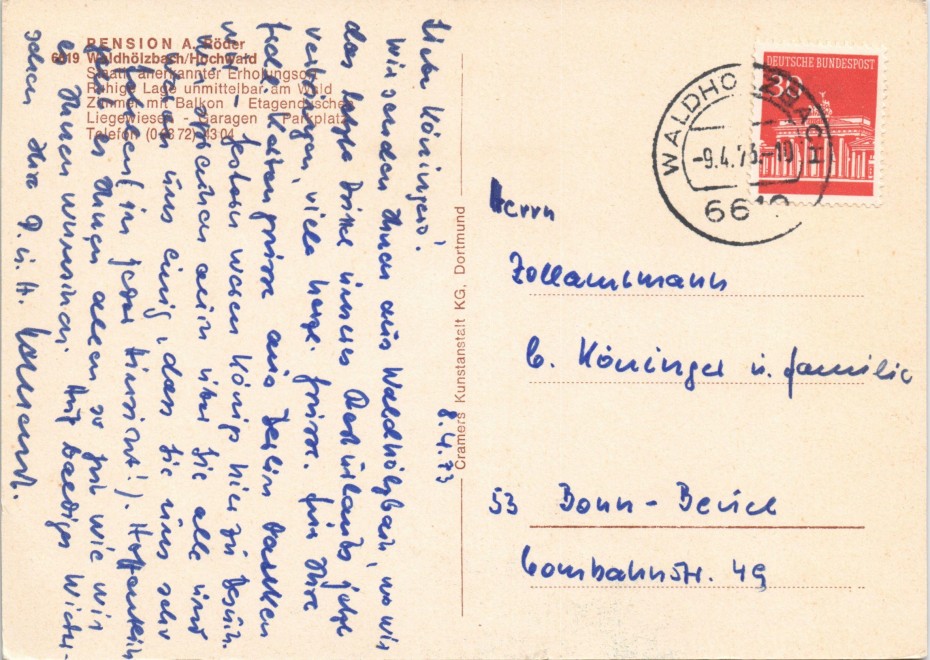 PENSION A. Röder
6619 Waldhölzbach/Hochwald
Staatl. anerkannter Erholungsort
Ruhige Lage unmittelbar am Wald
Zimmer mit Balkon - Etagenduschen
Liegewiesen - Garagen - Parkplatz
Telefon (0 68 72) 43 04
8.4.73
Liebe Köningers!
Wir senden Ihnen aus Waldhölzbach, wo wir
das letzte Drittel unseres Resturlaubs jetzt
verbringen, viele herzl. Grüsse. Für Ihre
Kartengrüsse aus Berlin danken
wir - Gestern waren Königs hier zu Besuch.
Wir sprachen auch über Sie alle und
waren uns einig, dass Sie uns sehr
fehlen (in jeder Hinsicht!). Hoffentlich
geht es Ihnen allen so gut wie wir
es Ihnen wünschen. Auf baldiges Wieder-
sehen Ihre P. u. H.
Cramers Kunstanstalt KG, Dortmund
DEUTSCHE BUNDESPOST
30
WALDHÖLZBACH
-9.4.73.-10
6619
Herrn
Zollamtmann
C. Köninger u. Familie
53 Bonn-Beuel
Combahnstr. 49